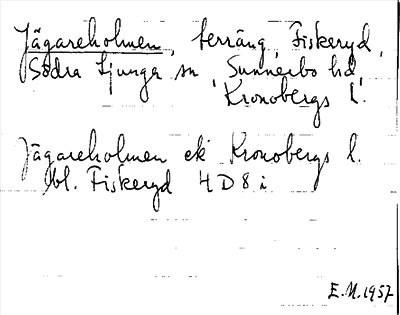 Jägareholmen, terräng, Fiskeryd,
Södra Ljunga sn, Sunnerbo hd,
Kronobergs l.
Jägareholmen ek Kronobergs l.
bl. Fiskeryd 4D8i
E.M.1957